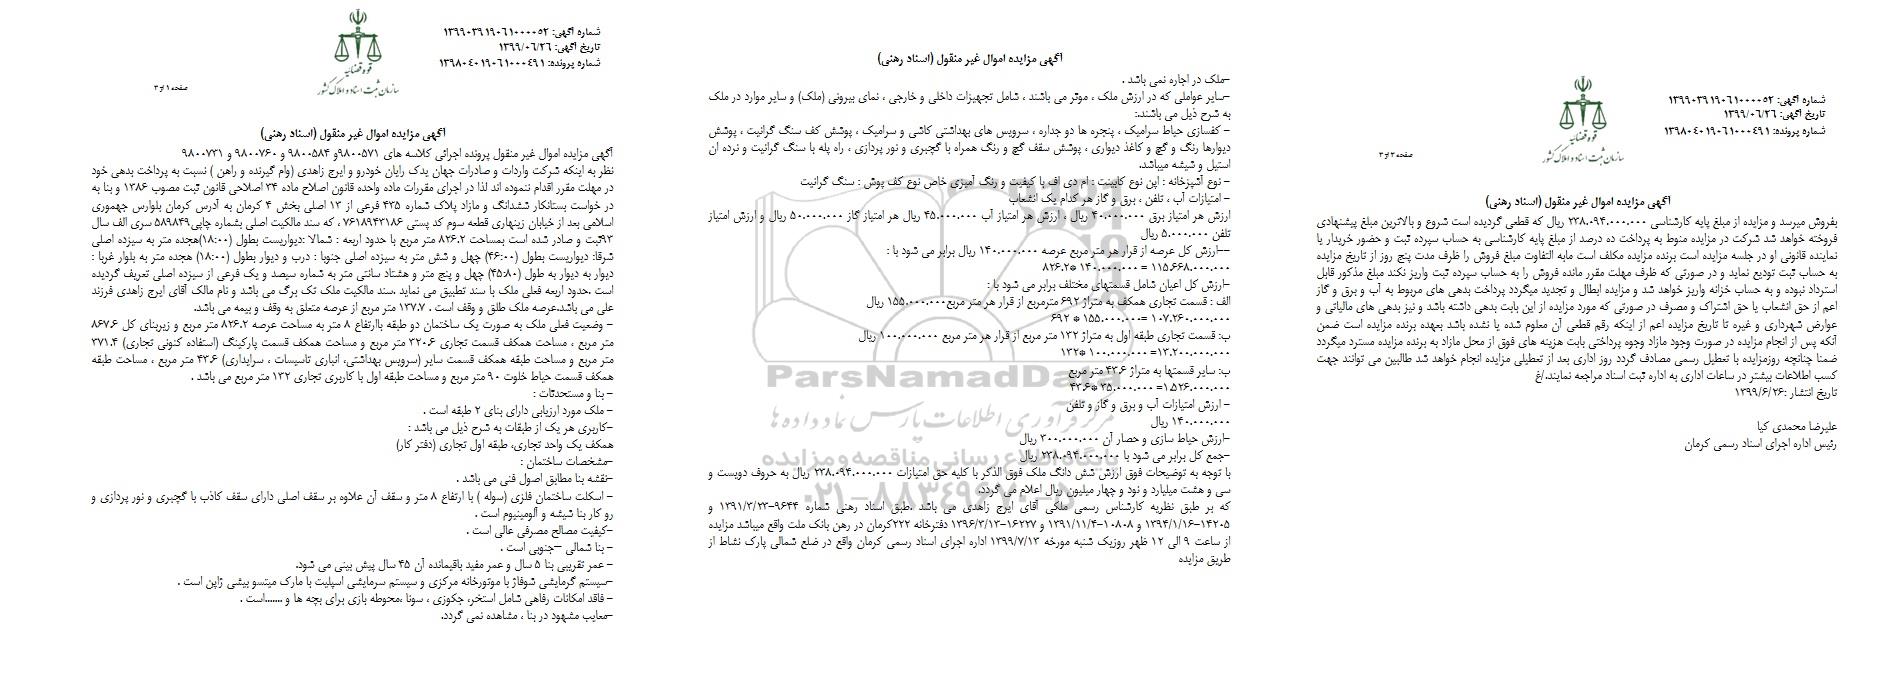 شماره آگهی: ۱۳۹۹۰۳۹۱۹۰۶۱۰۰۰۰۵۲
تاریخ آگهی: ۱۳۹۹/۰۶/۲۶
شماره پرونده: ۱۳۹۸۰۴۰۱۹۰۶۱۰۰۰۴۹۱
قوه قضائیه
سازمان ثبت اسناد و املاک کشور
صفحه ۱ از ۳
آگهی مزایده اموال غیر منقول (اسناد رهنی)
آگهی مزایده اموال غیر منقول پرونده اجرائی کلاسه های ۹۸۰۰۵۷۱و ۹۸۰۰۵۸۴ و ۹۸۰۰۷۶۰ و ۹۸۰۰۷۳۱
نظر به اینکه شرکت واردات و صادرات جهان یدک رایان خودرو و ایرج زاهدی (وام گیرنده و راهن ) نسبت به پرداخت بدهی خود
در مهلت مقرر اقدام ننموده اند لذا در اجرای مقررات ماده واحده قانون اصلاح ماده ۳۴ اصلاحی قانون ثبت مصوب ۱۳۸۶ و بنا به
در خواست بستانکار ششدانگ و مازاد پلاک شماره ۴۳۵ فرعی از ۱۳ اصلی بخش ۴ کرمان به آدرس کرمان بلوارس جهموری
اسلامی بعد از خیابان زینهاری قطعه سوم کد پستی ۷۶۱۸۹۴۳۱۸۶ ، که سند مالکیت اصلی بشماره چاپی۵۸۹۸۴۹ سری الف سال
۹۳ثبت و صادر شده است بمساحت ۸۲۶.۲ متر مربع با حدود اربعه : شمالا :دیواریست بطول (۱۸:۰۰)هجده متر به سیزده اصلی
شرقا: دیواریست بطول (۴۶:۰۰) چهل و شش متر به سیزده اصلی جنوبا : درب و دیوار بطول (۱۸:۰۰) هجده متر به بلوار غربا :
دیوار به دیوار به طول (۴۵:۸۰) چهل و پنج متر و هشتاد سانتی متر به شماره سیصد و یک فرعی از سیزده اصلی تعریف گردیده
است .حدود اربعه فعلی ملک با سند تطبیق می نماید .سند مالکیت ملک تک برگ می باشد و نام مالک آقای ایرج زاهدی فرزند
علی می باشد.عرصه ملک طلق و وقف است . ۱۳۷.۷ متر مربع از عرصه متعلق به وقف و بیمه می باشد.
- وضعیت فعلی ملک به صورت یک ساختمان دو طبقه باارتفاع ۸ متر به مساحت عرصه ۸۲۶.۲ متر مربع و زیربنای کل ۸۶۷.۶
متر مربع ، مساحت همکف قسمت تجاری ۳۲۰.۶ متر مربع و مساحت همکف قسمت پارکینگ (استفاده کنونی تجاری) ۳۷۱.۴
متر مربع و مساحت طبقه همکف قسمت سایر (سرویس بهداشتی، انباری تاسیسات ، سرایداری) ۴۳.۶ متر مربع ، مساحت طبقه
همکف قسمت حیاط خلوت ۹۰ متر مربع و مساحت طبقه اول با کاربری تجاری ۱۳۲ متر مربع می باشد .
- بنا و مستحدثات :
- ملک مورد ارزیابی دارای بنای ۲ طبقه است .
-کاربری هر یک از طبقات به شرح ذیل می باشد :
همکف یک واحد تجاری، طبقه اول تجاری (دفتر کار)
-مشخصات ساختمان :
-نقشه بنا مطابق اصول فنی می باشد .
- اسکلت ساختمان فلزی (سوله ) با ارتفاع ۸ متر و سقف آن علاوه بر سقف اصلی دارای سقف کاذب با گچبری و نور پردازی و
رو کار بنا شیشه و آلومینیوم است .
-کیفیت مصالح مصرفی عالی است .
- بنا شمالی –جنوبی است .
- عمر تقریبی بنا ۵ سال و عمر مفید باقیمانده آن ۴۵ سال پیش بینی می شود.
-سیستم گرمایشی شوفاژ با موتورخانه مرکزی و سیستم سرمایشی اسپلیت با مارک میتسو بیشی ژاپن است .
- فاقد امکانات رفاهی شامل استخر، جکوزی ، سونا ،محوطه بازی برای بچه ها و .......است .
-معایب مشهود در بنا ، مشاهده نمی گردد.
آگهی مزایده اموال غیر منقول (اسناد رهنی)
-ملک در اجاره نمی باشد .
-سایر عواملی که در ارزش ملک ، موثر می باشند ، شامل تجهیزات داخلی و خارجی ، نمای بیرونی (ملک) و سایر موارد در ملک
به شرح ذیل می باشند:
- کفسازی حیاط سرامیک ، پنجره ها دو جداره ، سرویس های بهداشتی کاشی و سرامیک ، پوشش کف سنگ گرانیت ، پوشش
دیوارها رنگ و گچ و کاغذ دیواری ، پوشش سقف گچ و رنگ همراه با گچبری و نور پردازی ، راه پله با سنگ گرانیت و نرده ان
استیل و شیشه میباشد.
- نوع آشپزخانه : اپن نوع کابینت : ام دی اف با کیفیت و رنگ آمیزی خاص نوع کف پوش : سنگ گرانیت
- امتیازات آب ، تلفن ، برق و گاز هر کدام یک انشعاب
ارزش هر امتیاز برق ۴۰.۰۰۰.۰۰۰ ریال ، ارزش هر امتیاز آب ۴۵.۰۰۰.۰۰۰ ریال هر امتیاز گاز ۵۰.۰۰۰.۰۰۰ ریال و ارزش امتیاز
تلفن ۵.۰۰۰.۰۰۰ ریال
--ارزش کل عرصه از قرار هر متر مربع عرصه ۱۴۰.۰۰۰.۰۰۰ ریال برابر می شود با :
۱۱۵.۶۶۸.۰۰۰.۰۰۰ = ۱۴۰.۰۰۰.۰۰۰ *۸۲۶.۲
-ارزش کل اعیان شامل قسمتهای مختلف برابر می شود با :
الف : قسمت تجاری همکف به متراژ ۶۹۲ مترمربع از قرار هر متر مربع۱۵۵.۰۰۰.۰۰۰ ریال
۱۰۷.۲۶۰.۰۰۰.۰۰۰ =۱۵۵.۰۰۰.۰۰۰* ۶۹۲
ب: قسمت تجاری طبقه اول به متراژ ۱۳۲ متر مربع از قرار هر متر مربع ۱۰۰.۰۰۰.۰۰۰ ریال
۱۳.۲۰۰.۰۰۰.۰۰۰= ۱۰۰.۰۰۰.۰۰۰ *۱۳۲
ب: سایر قسمتها به متراژ ۴۳.۶ متر مربع
۱.۵۲۶.۰۰۰.۰۰۰= ۳۵.۰۰۰.۰۰۰ *۴۳.۶
- ارزش امتیازات آب و برق و گاز و تلفن
۱۴۰.۰۰۰.۰۰۰ ریال
-ارزش حیاط سازی و حصار آن ۳۰۰.۰۰۰.۰۰۰ ریال
-جمع کل برابر می شود با ۲۳۸.۰۹۴.۰۰۰.۰۰۰ ریال
با توجه به توضیحات فوق ارزش شش دانگ ملک فوق الذکر با کلیه حق امتیازات ۲۳۸.۰۹۴.۰۰۰.۰۰۰ ریال به حروف دویست و
سی و هشت میلیارد و نود و چهار میلیون ریال اعلام می گردد.
که بر طبق نظریه کارشناس رسمی ملکی آقای ایرج زاهدی می باشد .طبق اسناد رهنی شماره ۹۶۴۴-۱۳۹۱/۳/۲۳ و
۱۴۲۰۵-۱۳۹۴/۱/۱۶ و ۱۰۸۰۸-۱۳۹۱/۱۱/۴ و ۱۶۲۲۷-۱۳۹۶/۳/۱۳ دفترخانه ۲۲۲کرمان در رهن بانک ملت واقع میباشد مزایده
از ساعت ۹ الی ۱۲ ظهر روزیک شنبه مورخه ۱۳۹۹/۷/۱۳ اداره اجرای اسناد رسمی کرمان واقع در ضلع شمالی پارک نشاط از
طریق مزایده
ParsNamadData
مرکز فرآوری اطلاعات پارس نماد داده ها
پایگاه اطلاع رسانی مناقصه و مزایده
۰۲۱-۸۸۳۴۹۶۷۰-۵
شماره آگهی: ۱۳۹۹۰۳۹۱۹۰۶۱۰۰۰۰۵۲
تاریخ آگهی: ۱۳۹۹/۰۶/۲۶
شماره پرونده: ۱۳۹۸۰۴۰۱۹۰۶۱۰۰۰۴۹۱
قوه قضائیه
سازمان ثبت اسناد و املاک کشور
صفحه ۳ از ۳
آگهی مزایده اموال غیر منقول (اسناد رهنی)
بفروش میرسد و مزایده از مبلغ پایه کارشناسی ۲۳۸.۰۹۴.۰۰۰.۰۰۰ ریال که قطعی گردیده است شروع و بالاترین مبلغ پیشنهادی
فروخته خواهد شد شرکت در مزایده منوط به پرداخت ده درصد از مبلغ پایه کارشناسی به حساب سپرده ثبت و حضور خریدار یا
نماینده قانونی او در جلسه مزایده است برنده مزایده مکلف است مابه التفاوت مبلغ فروش را ظرف مدت پنج روز از تاریخ مزایده
به حساب ثبت تودیع نماید و در صورتی که ظرف مهلت مقرر مانده فروش را به حساب سپرده ثبت واریز نکند مبلغ مذکور قابل
استرداد نبوده و به حساب خزانه واریز خواهد شد و مزایده ابطال و تجدید میگردد پرداخت بدهی های مربوط به آب و برق و گاز
اعم از حق انشعاب یا حق اشتراک و مصرف در صورتی که مورد مزایده از این بابت بدهی داشته باشد و نیز بدهی های مالیاتی و
عوارض شهرداری و غیره تا تاریخ مزایده اعم از اینکه رقم قطعی آن معلوم شده یا نشده باشد بعهده برنده مزایده است ضمن
آنکه پس از انجام مزایده در صورت وجود مازاد وجوه پرداختی بابت هزینه های فوق از محل مازاد به برنده مزایده مسترد میگردد
ضمنا چنانچه روزمزایده با تعطیل رسمی مصادف گردد روز اداری بعد از تعطیلی مزایده انجام خواهد شد طالبین می توانند جهت
کسب اطلاعات بیشتر در ساعات اداری به اداره ثبت اسناد مراجعه نمایند./غ
تاریخ انتشار :۱۳۹۹/۶/۲۶
علیرضا محمدی کیا
رئیس اداره اجرای اسناد رسمی کرمان